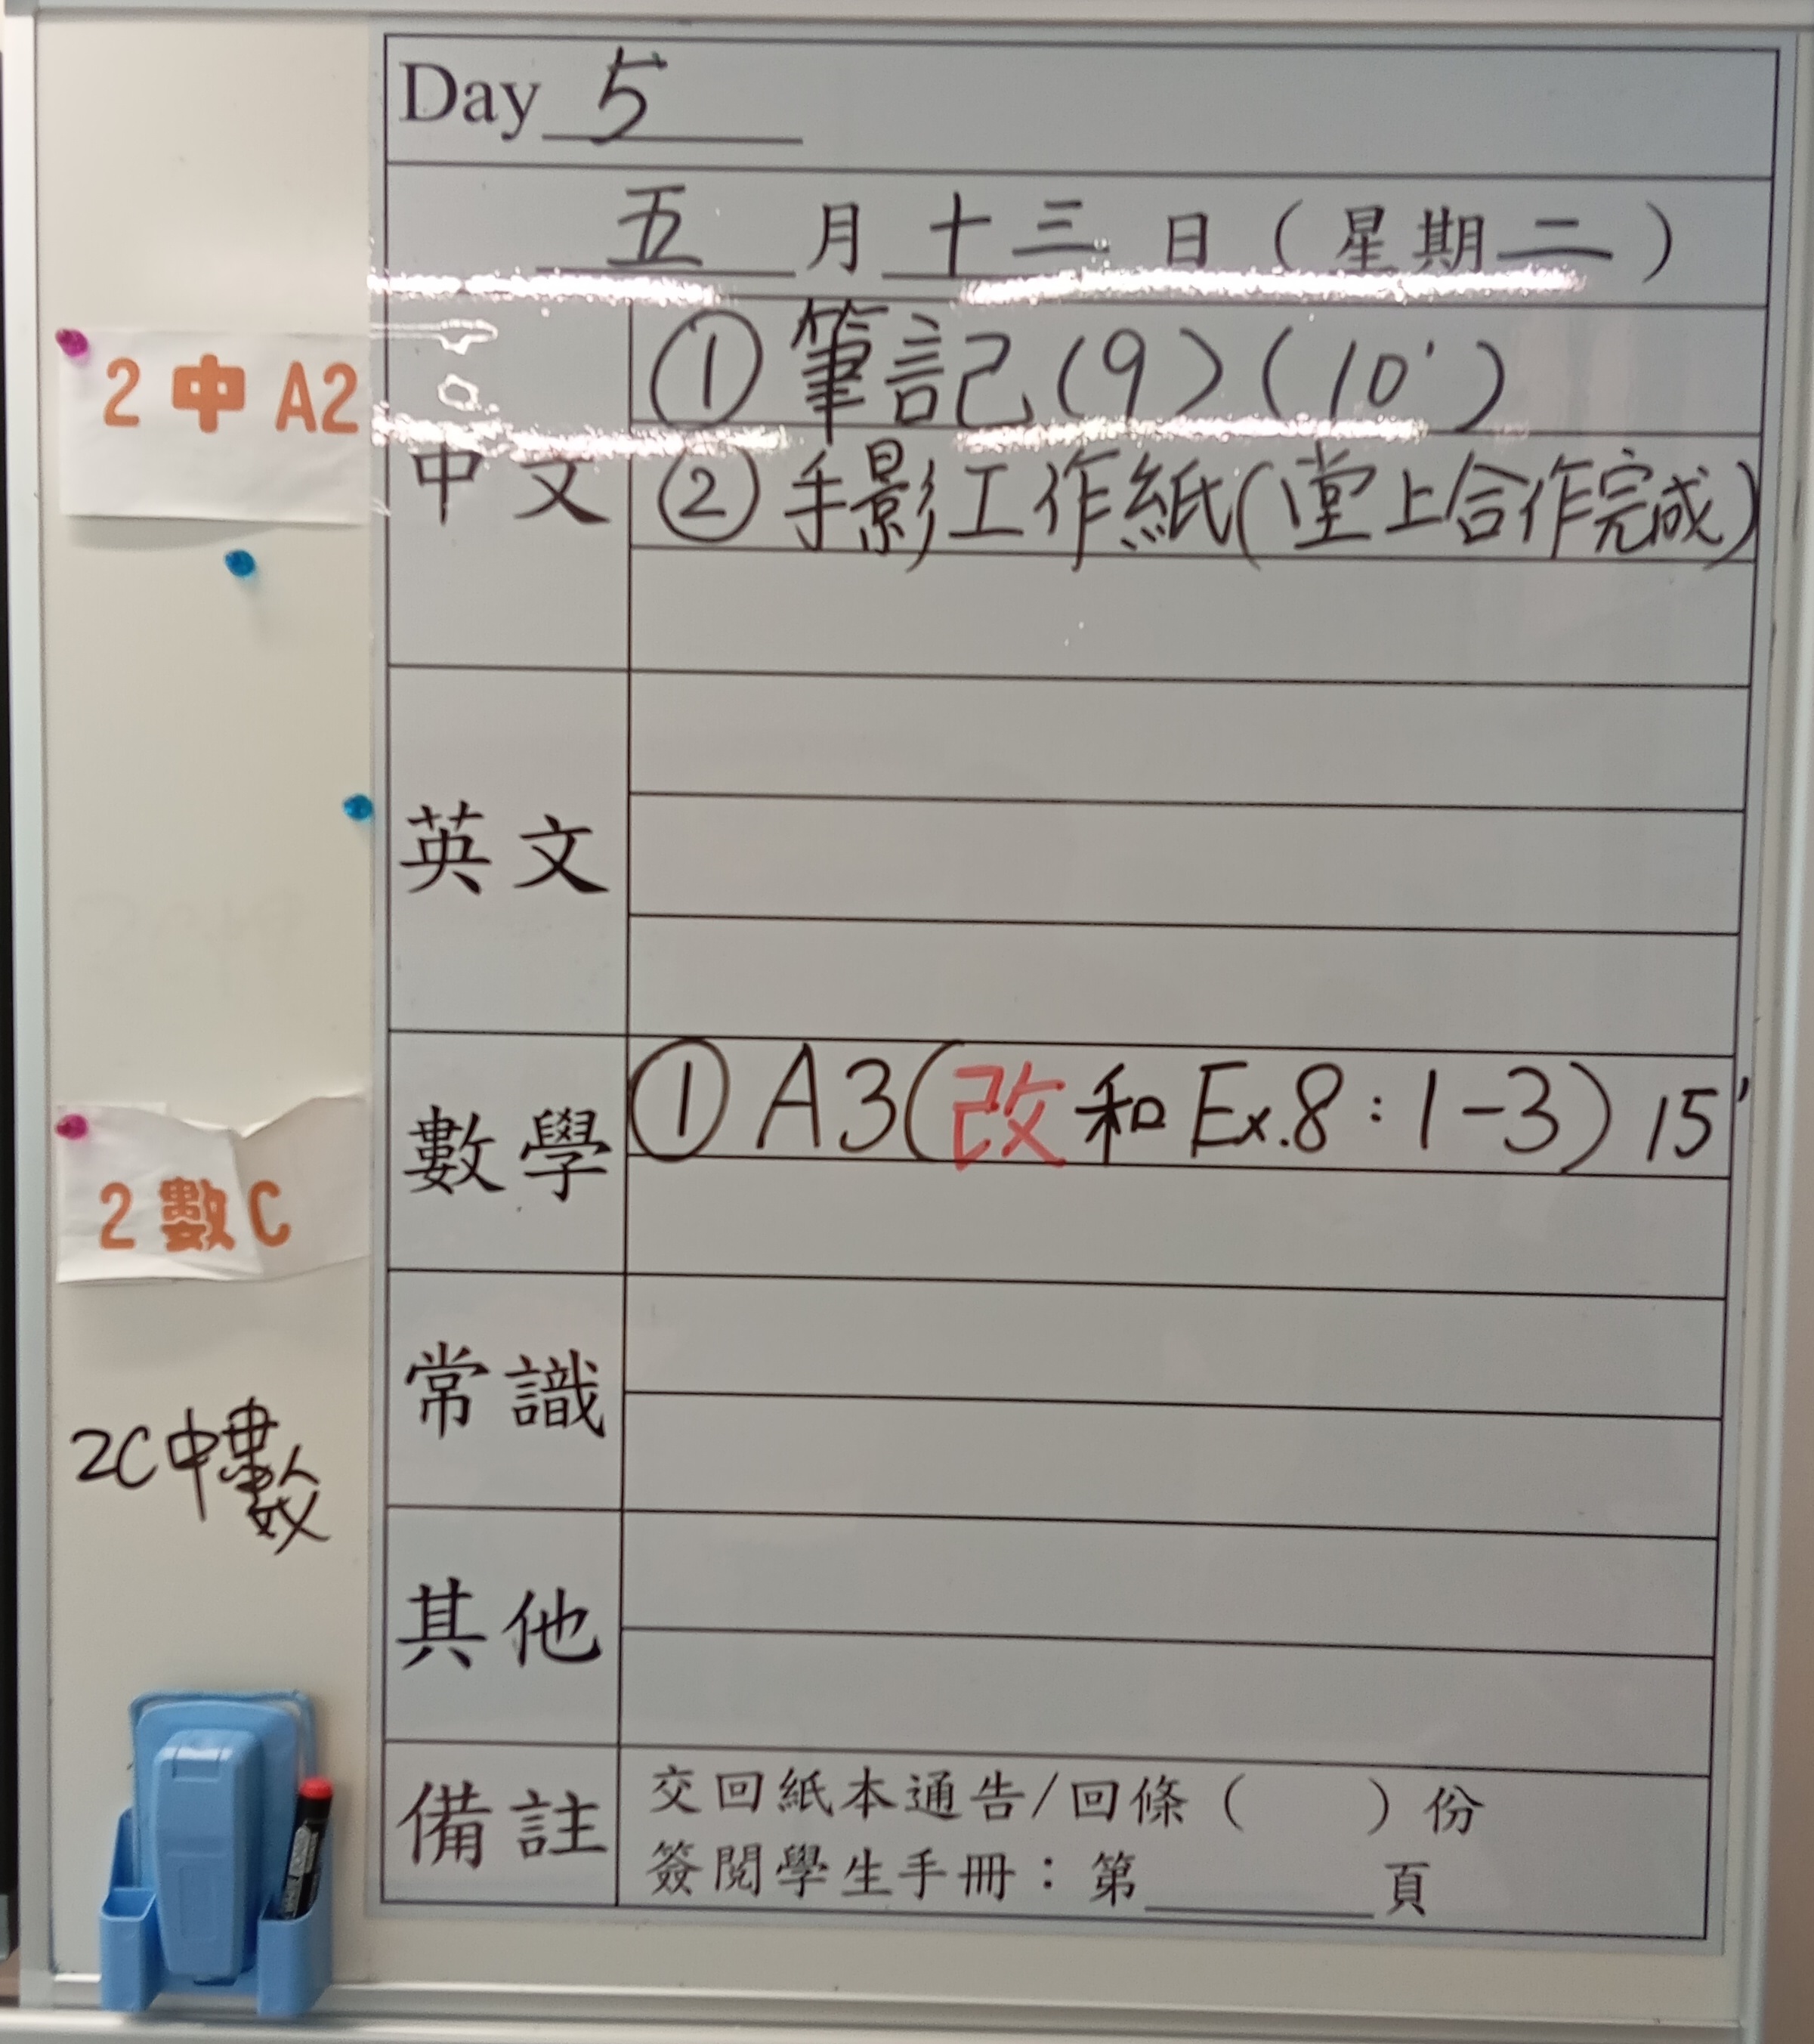 Day 5
五 月 十三 日（星期二）
2 中 A2
中文
① 筆記(9)(10')
② 手影工作紙(堂上合作完成)
英文
數學
① A3(改和Ex.8:1-3) 15'
2 數 C
常識
2C中數
其他
備註
交回紙本通告/回條（　　）份
簽閱學生手冊：第______頁